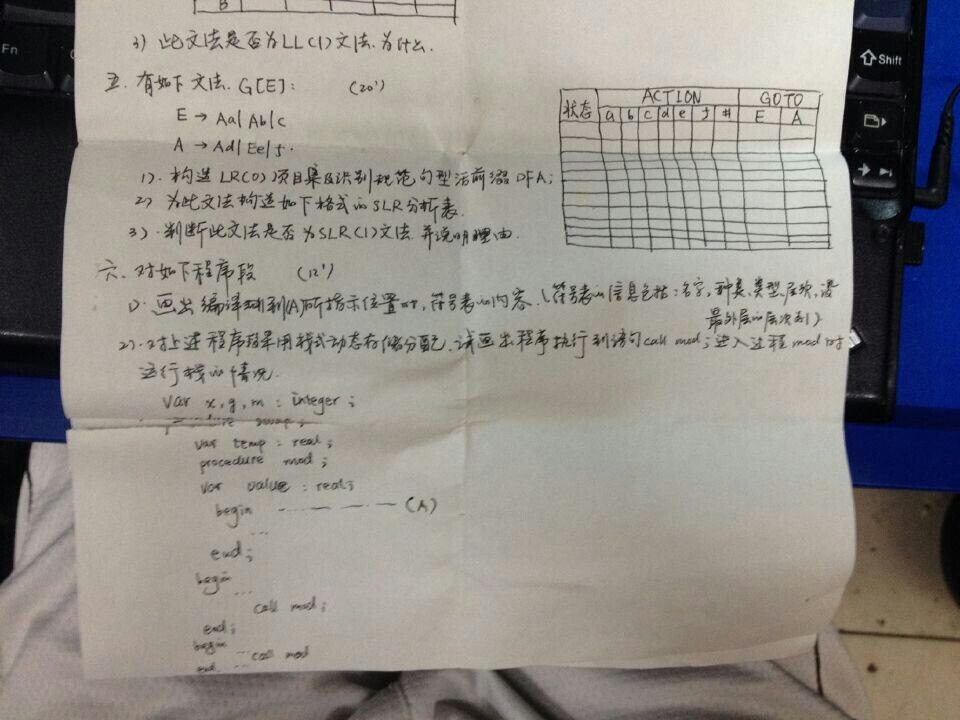 B
3) 此文法是否为LL(1)文法.为什么.
五. 有如下文法. G[E]: (20')
E → Aa|Ab|c
A → Ad|Ee|f.
1). 构造LR(0)项目集及识别规范句型活前缀DFA;
2) 为此文法构造如下格式的SLR分析表.
3). 判断此文法是否为SLR(1)文法.并说明理由.
状态 ACTION GOTO
a b c d e f # E A
六. 对如下程序段 (12')
1). 画出编译到(A)所指示位置时,符号表的内容.(符号表的信息包括:名字,种类,类型,层次,设
最外层的层次为1)
2). 对上述程序段采用栈式动态存储分配.试画出程序执行到语句call mod;进入过程mod时
运行栈的情况.
var x,y,m : integer;
var temp : real;
procedure mod;
var value : real;
begin (A)
...
end;
begin
...
call mod;
end;
begin
... call mod
end.
Fn
Shift